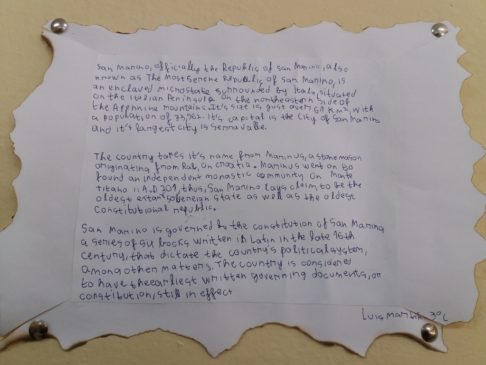 San Marino, officially the Republic of San Marino, also
known as The Most Serene Republic of San Marino, is
an enclaved microstate surrounded by Italy, situated
on the Italian Peninsula on the northeastern side of
the Appenine mountains. It's size is just over 60 km², with
a population of 33,562. It's capital is the City of San Marino
and it's largest city is Serravalle.
The country takes it's name from Marinus, a stonemason
originating from Rab, in Croatia. Marinus went on to
found an independent monastic community on Monte
Titano in A.D 301, thus, San Marino lays claim to be the
oldest extant sovereign state as well as the oldest
Constitutional republic.
San Marino is governed by the constitution of San Marino
a series of six books written in Latin in the late 16th
century, that dictate the country's political system,
among other matters. The country is considered
to have the earliest written governing documents, or
constribution, still in effect
Luis 3ºC